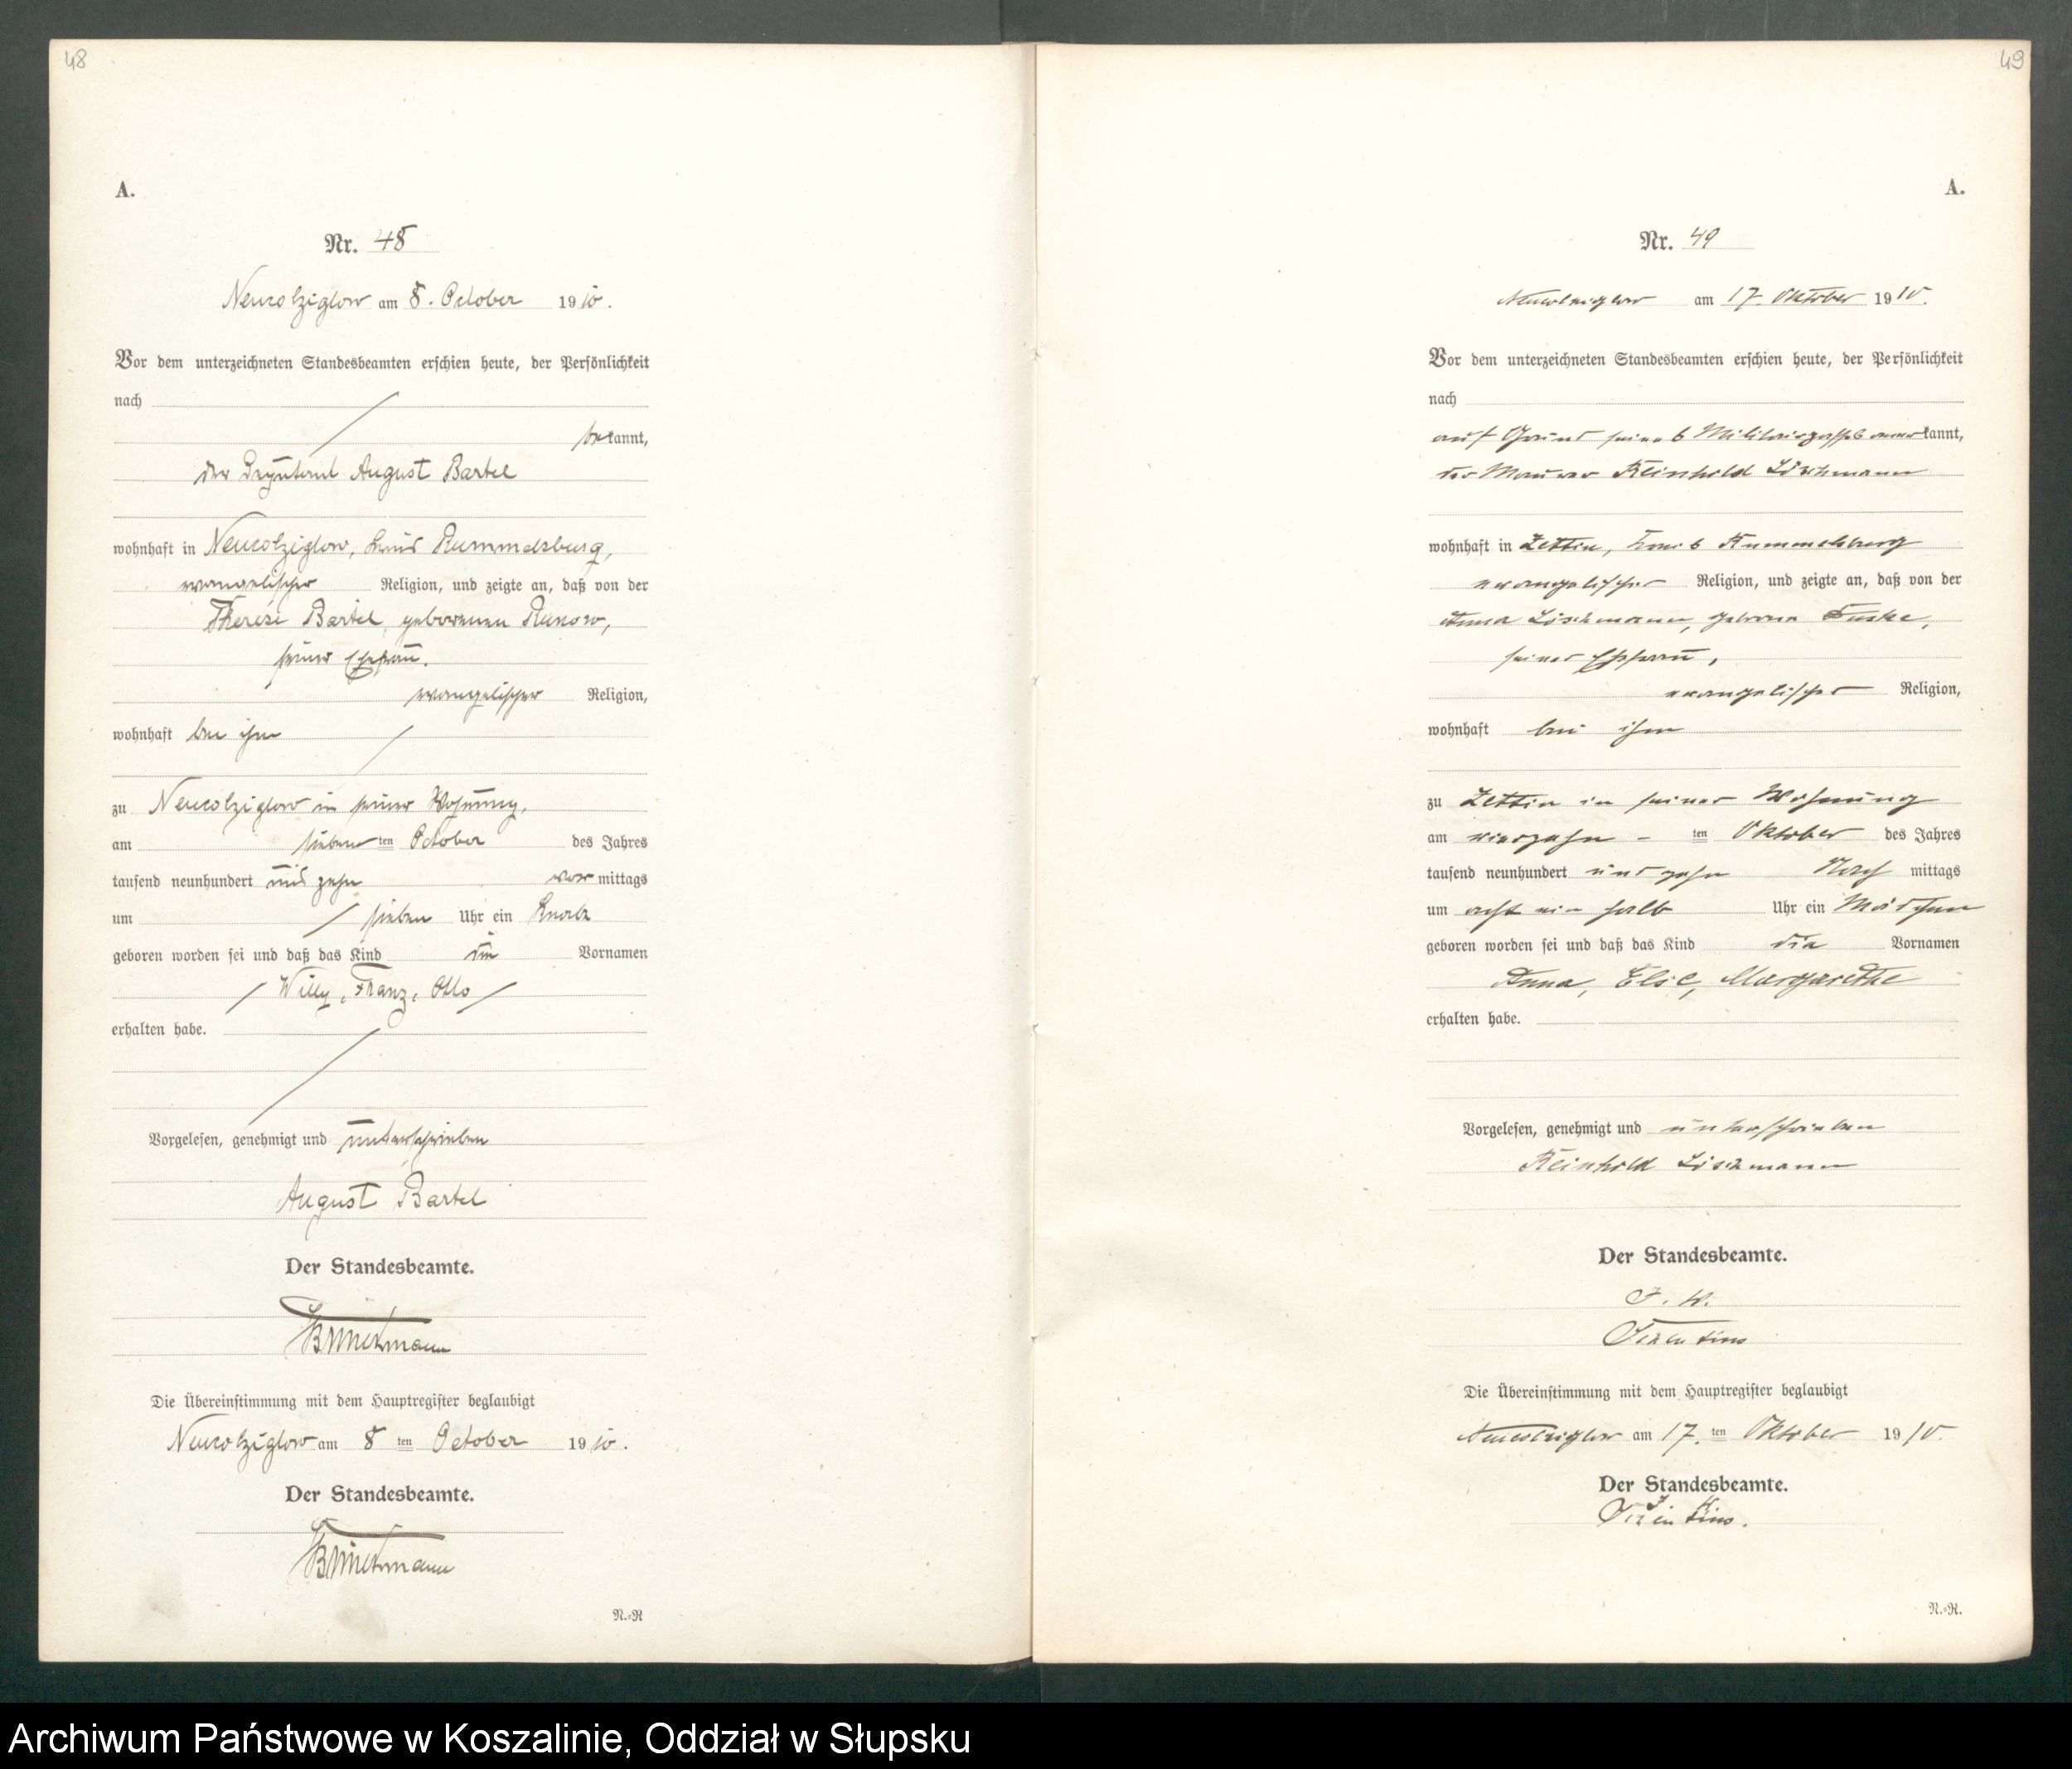 48
A.
Nr. 48
Neucolziglow am 8. October 1910.
Vor dem unterzeichneten Standesbeamten erschien heute, der Persönlichkeit
nach
bekannt,
der Deputant August Bartel
wohnhaft in Neucolziglow, Kreis Rummelsburg,
evangelischer Religion, und zeigte an, daß von der
Therese Bartel, geborenen Rukow,
seiner Ehefrau.
evangelischer Religion,
wohnhaft bei ihm
zu Neucolziglow in seiner Wohnung,
am sieben ten October des Jahres
tausend neunhundert und zehn vor mittags
um sieben Uhr ein Knabe
geboren worden sei und daß das Kind die Vornamen
Willy, Franz, Otto
erhalten habe.
Vorgelesen, genehmigt und unterschrieben
August Bartel
Der Standesbeamte.
Die Übereinstimmung mit dem Hauptregister beglaubigt
Neucolziglow am 8 ten October 1910.
Der Standesbeamte.
N.=R
49
A.
Nr. 49
Neucolziglow am 17. Oktober 1910.
Vor dem unterzeichneten Standesbeamten erschien heute, der Persönlichkeit
nach
auf Grund seines Militairpasses anerkannt,
der Maurer Reinhold Löschmann
wohnhaft in Zettin, Kreis Rummelsburg
evangelischer Religion, und zeigte an, daß von der
Anna Löschmann, geborne
seiner Ehefrau,
evangelischer Religion,
wohnhaft bei ihm
zu Zettin in seiner Wohnung
am vierzehn - ten Oktober des Jahres
tausend neunhundert und zehn Nach mittags
um acht ein halb Uhr ein Mädchen
geboren worden sei und daß das Kind die Vornamen
Anna, Else, Margarethe
erhalten habe.
Vorgelesen, genehmigt und unterschrieben
Reinhold Löschmann
Der Standesbeamte.
J. V.
Die Übereinstimmung mit dem Hauptregister beglaubigt
Neucolziglow am 17. ten Oktober 1910.
Der Standesbeamte.
J. V.
N.=R.
Archiwum Państwowe w Koszalinie, Oddział w Słupsku